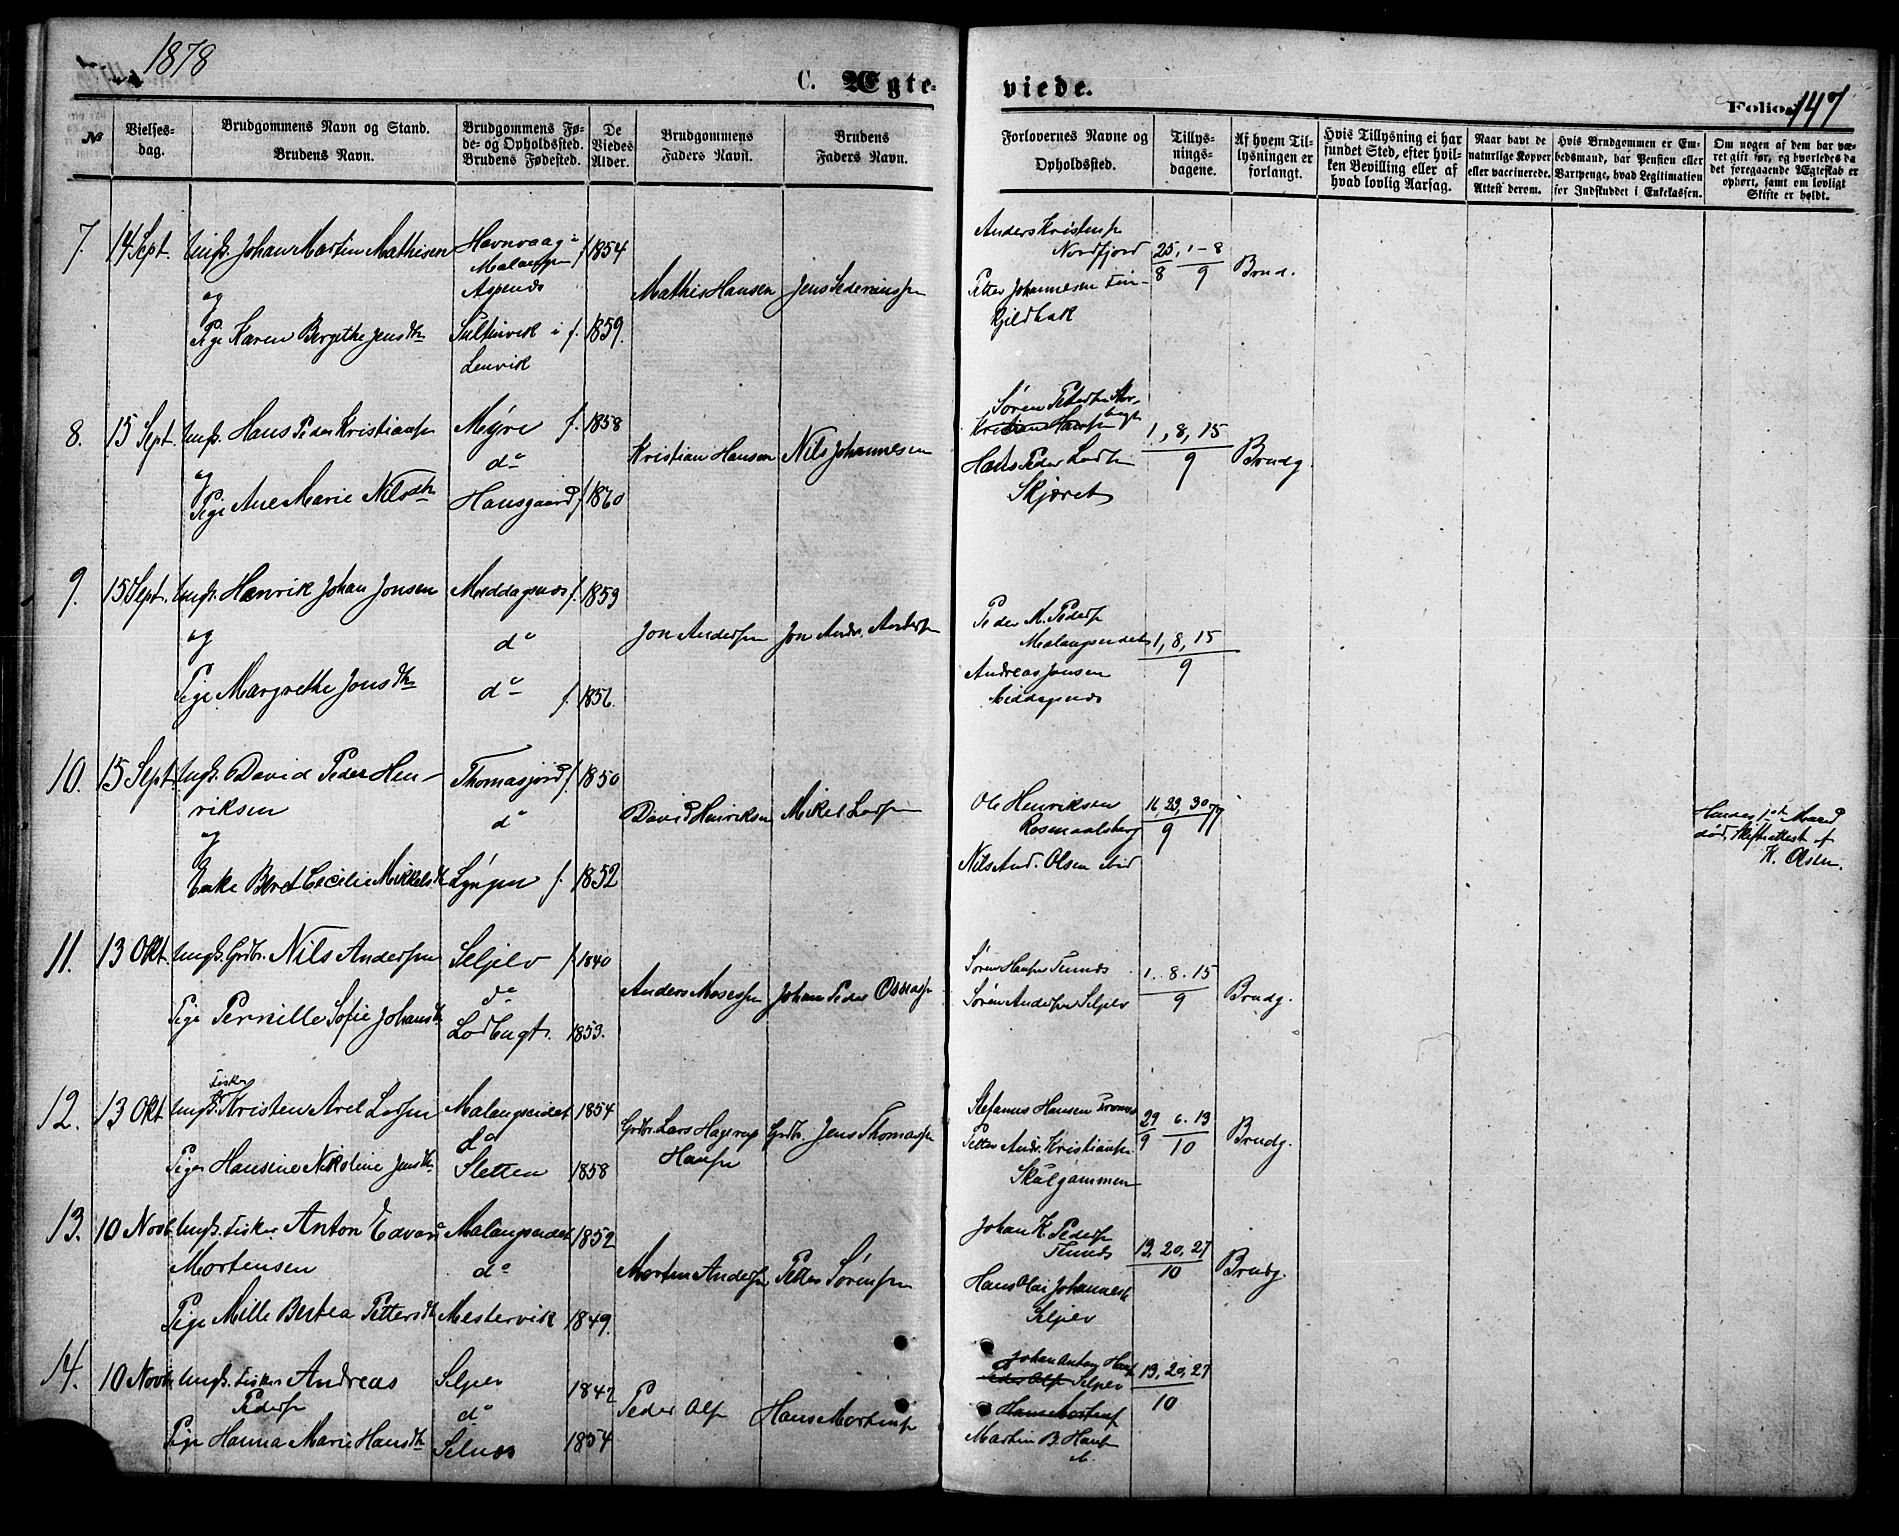 1878
C. Ægteviede.
Folio 147
№
Vielsesdag.
Brudgommens Navn og Stand.
Brudens Navn.
Brudgommens Føde- og Opholdssted.
Brudens Fødested.
De Viedes Alder.
Brudgommens Faders Navn.
Brudens Faders Navn.
Forlovernes Navne og Opholdssted.
Tillysningsdagene.
Af hvem Tillysningen er forlangt.
Hvis Tillysning ei har fundet Sted, efter hvilken Bevilling eller af hvad lovlig Aarsag.
Naar havt de naturlige Kopper eller vaccinerede. Attest derom.
Hvis Brudgommen er Embedsmand, har Pension eller Vartpenge, hvad Legitimation for Indskuddet i Enkekassen.
Om nogen af dem har været gift før, og hvorledes da det foregaaende Ægteskab er ophørt, samt om lovligt Skifte er holdt.
7. 14 Sept. Ungk. Johan Martin Mathisen
og
Pige Karen Bergithe Jensdtr
Havnvaag i
Malangen
Aspenes
Sultinvik i
Lenvik
f. 1854
f. 1859.
Mathis Hansen
Anders Kristens
Nordfjord
Petter Johannesen
Kjeldbak
25, 1-8
8 9
Brud.
8. 15 Sept. Ungk. Hans Peder Kristians
og
Pige Ane Marie Nilsdtr
Myre
do
Hansgaard
f. 1858
f. 1860
Kristian Hansen Nils Johannesen
Søren Peders
Kristian Hans
Hans Peder
Skjæret
1, 8, 15
9
Brudg
9. 15 Sept. Ungk. Henrik Johan Jonsen
og
Pige Margrethe Jonsdtr
Middagsnes
do
do
f. 1853
f. 1856.
Jon Anders Jon Andr. Anders
Peder M. Peders
Malangseidet
Andreas Jonsen
Middagsnes
1, 8, 15
9
10. 15 Sept. Ungk. David Peder Henriksen
og
Enke Beret Cecilie Mikkelsdtr
Thomasjord
do
Lyngen
f. 1850
f. 1852
David Henriksen Mikel Lars
Ole Henriksen
Rosmaalsberg
Nils And. Olsen ibid
16, 23, 30
9
Hendes 1ste Mand
død, Skifteattest af
K. Olsen.
11. 13 Okt. Ungk. Grdbr. Nils Anders
Pige Pernille Sofie Johansdtr
Seljelv
do
Lodbugt.
f. 1840
1853.
Anders Moses Johan Peder
Søren Hans
Søren Anders Seljelv
1. 8. 15
9
Brudg.
12. 13 Okt. Ungk. Fisker Kristen Arel Lars
Pige Hansine Nikoline Jensdtr
Malangseidet
do
Sletten
1854
1858
Grdbr. Lars Hagerup
Hans
Grdbr. Jens Thomas
Stefanus Hansen
Petter Andr. Kristians
Skutgammen
29 6. 13
9 10
Brudg.
13. 10 Novb Ungk. Fisker Anton Edvard
Mortensen
Pige Mille Bertea Pettersdtr
Malangseidet
do
Mestervik
1852
1849.
Morten Anders Petter Sørens
Johan K. Peders
Hans Olai Johannes
Seljelv
13, 20, 27
10
Brudg.
14. 10 Novb Ungk. Fisker Andreas
Peders
Pige Hanna Marie Hansdtr
Seljelv
do
Selnes
1847
1854
Peder Ols Hans Mortens
Johan Anton Hans
Peder Ols Seljelv
Hans Mortens
Martin B. Hans
13, 20, 27
10